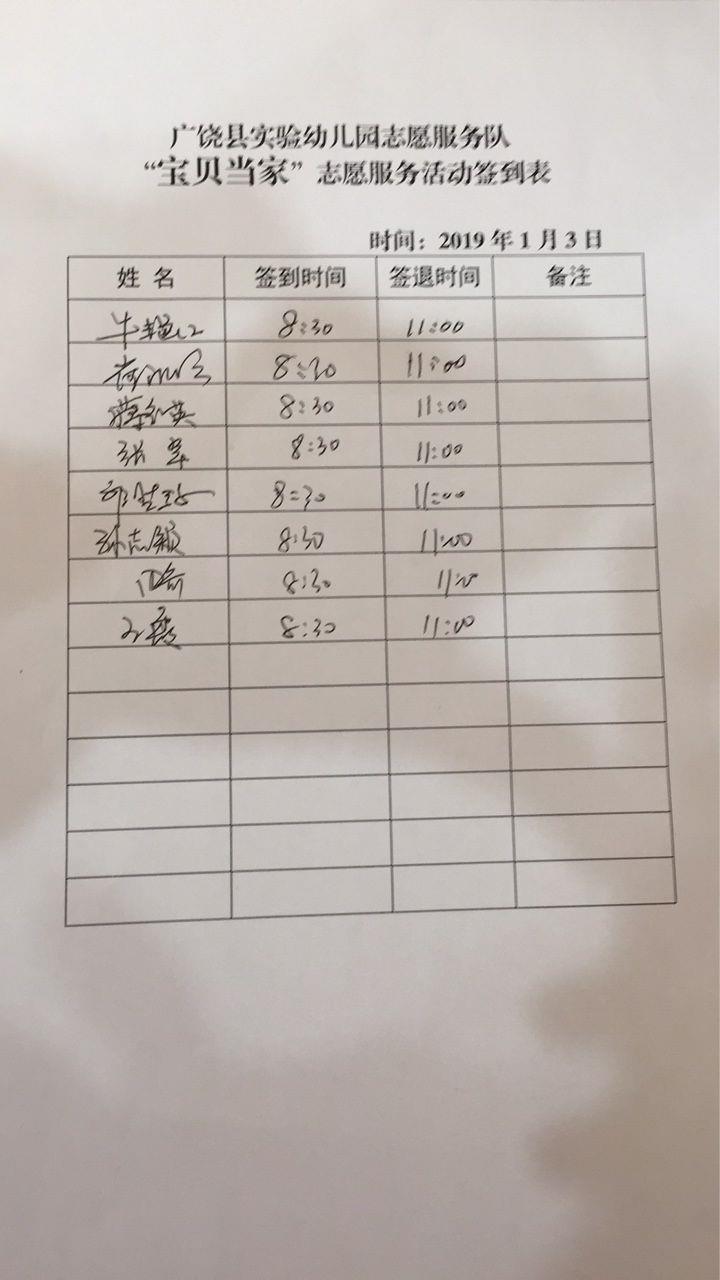 广饶县实验幼儿园志愿服务队
“宝贝当家”志愿服务活动签到表
时间：2019年1月3日
姓 名 签到时间 签退时间 备注
8:30 11:00
8:30 11:00
8:30 11:00
张 翠 8:30 11:00
8:30 11:00
孙志颖 8:30 11:00
8:30 11:00
8:30 11:00